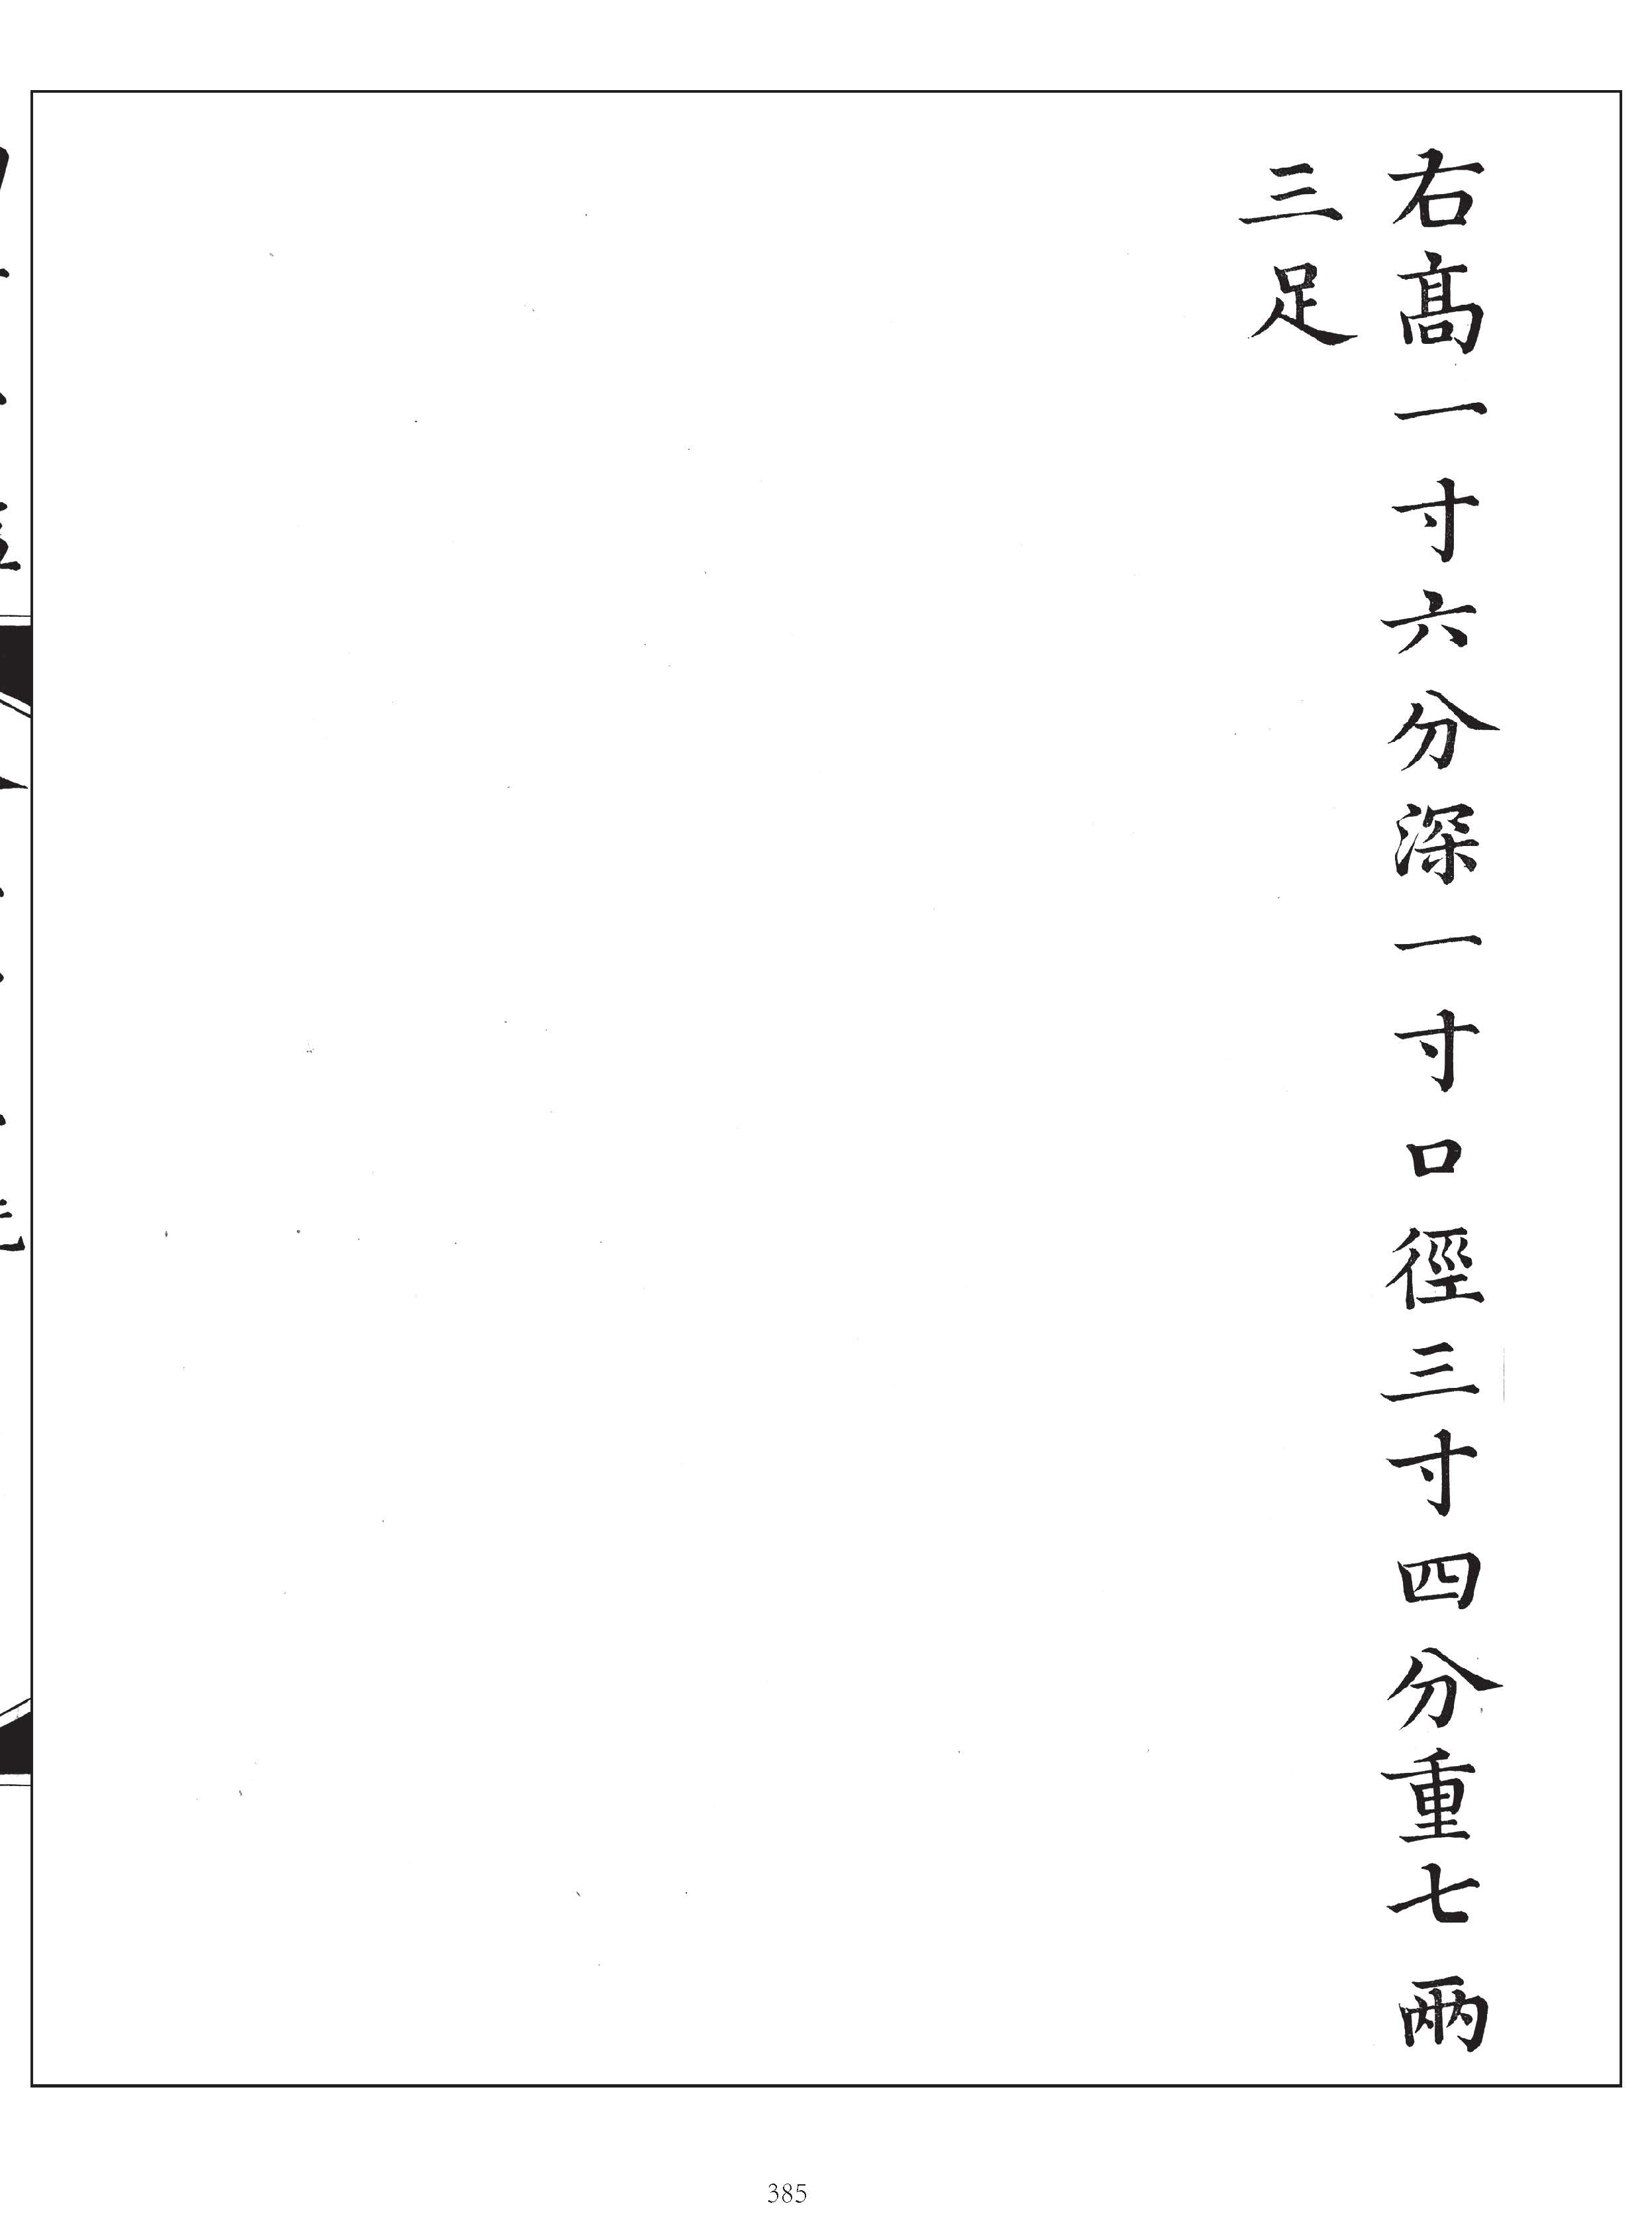 右髙一寸六分深一寸口徑三寸四分重七兩
三足
385